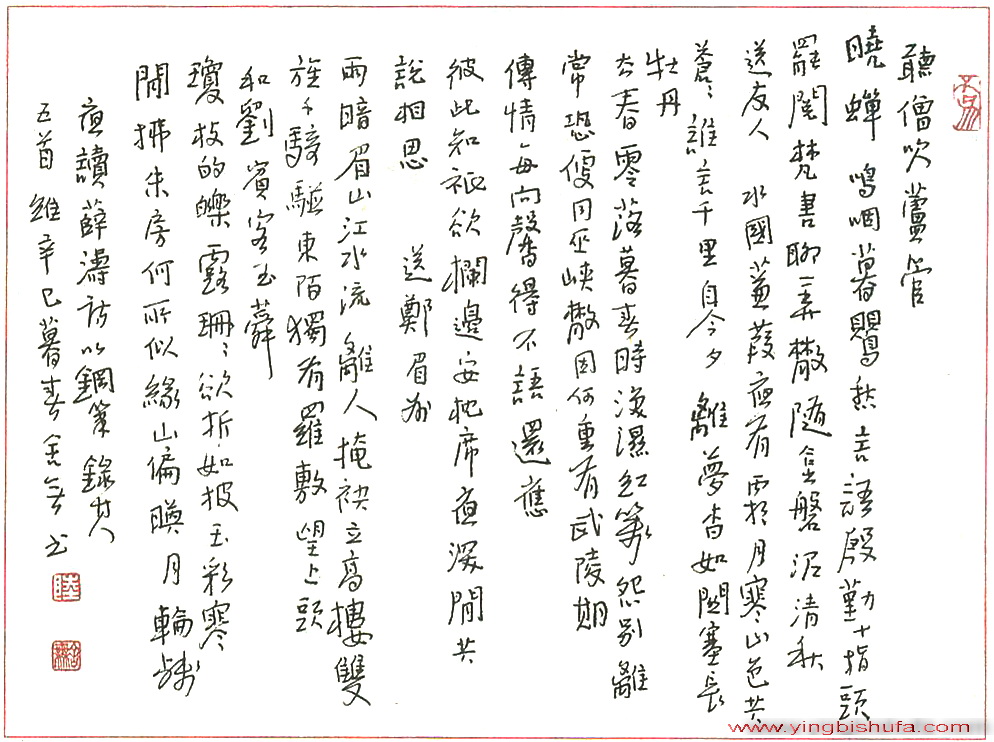 聽僧吹蘆管
曉蟬鳴咽暮鶯愁言語殷勤十指頭
罷閱梵書聊一弄散隨金磬泥清秋
送友人 水國蒹葭夜有霜月寒山色共
蒼〻誰言千里自今夕離夢杳如關塞長
牡丹
去春零落暮春時淚濕紅箋怨別離
常恐便同巫峽散因何重有武陵期
傳情每向馨得不語還應
彼此知祗欲欄邊安枕席夜深閒共
說相思 送鄭眉州
雨暗眉山江水流離人掩袂立高樓雙
旌千騎駢東陌獨有羅敷望上頭
和劉賓客玉蕣
瓊枝的皪露珊〻欲折如披玉彩寒
閒拂朱房何所似緣山偏暎月輪殘
夜讀薛濤詩以鋼筆錄其
五首 維辛巳暮春 书
www.yingbishufa.com